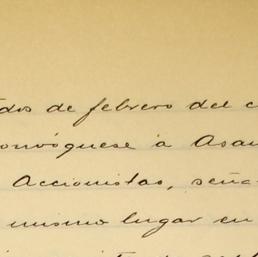 dos de febrero del
convóquese a Asam
Accionistas, seña
mismo lugar en